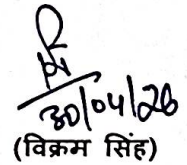 30/04/26
(विक्रम सिंह)